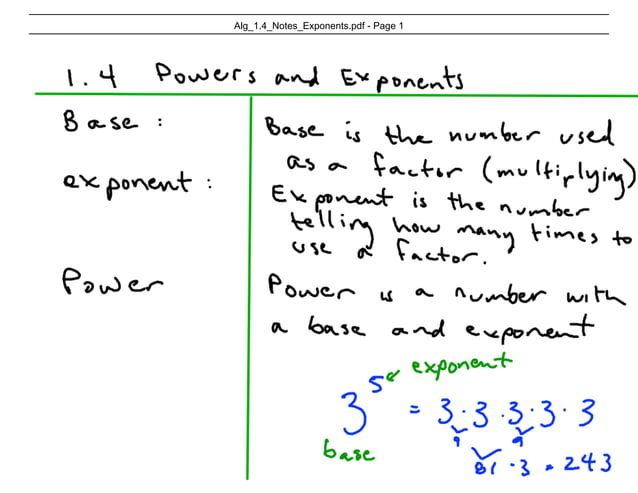 Alg_1.4_Notes_Exponents.pdf - Page 1
1.4 Powers and Exponents
Base :
Base is the number used
as a factor (multiplying)
exponent :
Exponent is the number
telling how many times to
use a factor.
Power
Power is a number with
a base and exponent
exponent
3^5 = 3 · 3 · 3 · 3 · 3
base
9 9
81 · 3 = 243